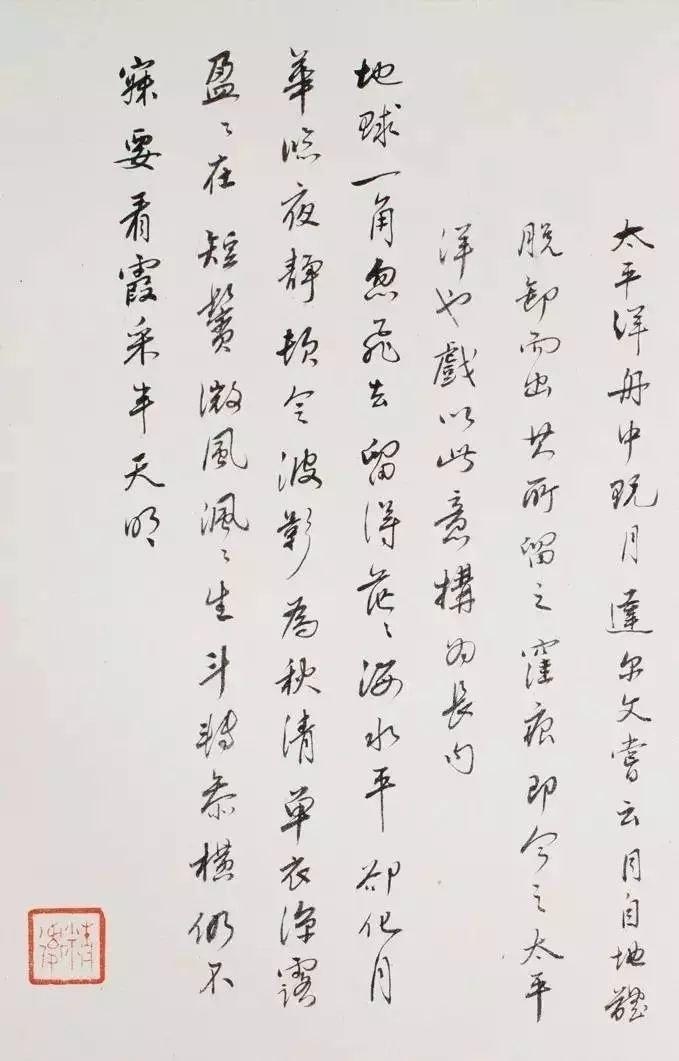 太平洋舟中玩月達尔文嘗云月自地體
脫卸而出其所留之窪痕即今之太平
洋也戲以此意構為長句
地球一角忽飛去留得茫〻海水平卻化月
華臨夜靜頓令波影為秋清單衣涼露
盈〻在短鬢微風渢〻生斗轉參橫仍不
寐要看霞采半天明
精衛